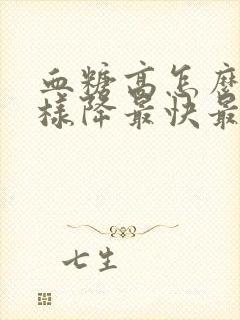 血糖高怎麽
样降最快最
七生